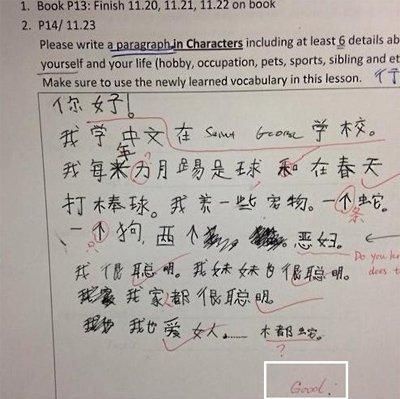 1. Book P13: Finish 11.20, 11.21, 11.22 on book
2. P14/ 11.23
Please write a paragraph in Characters including at least 6 details
yourself and your life (hobby, occupation, pets, sports, sibling and
Make sure to use the newly learned vocabulary in this lesson.
你好!
我学中文在 Saint George 学校。
我每年 月踢足球和在春天
打棒球。我养一些宠物。一个蛇。
条
一个狗,西个 。恶妇。
Do you
我很聪明。我妹妹也很聪明。
我家都很聪明。
我也爱女人……
?
Good!